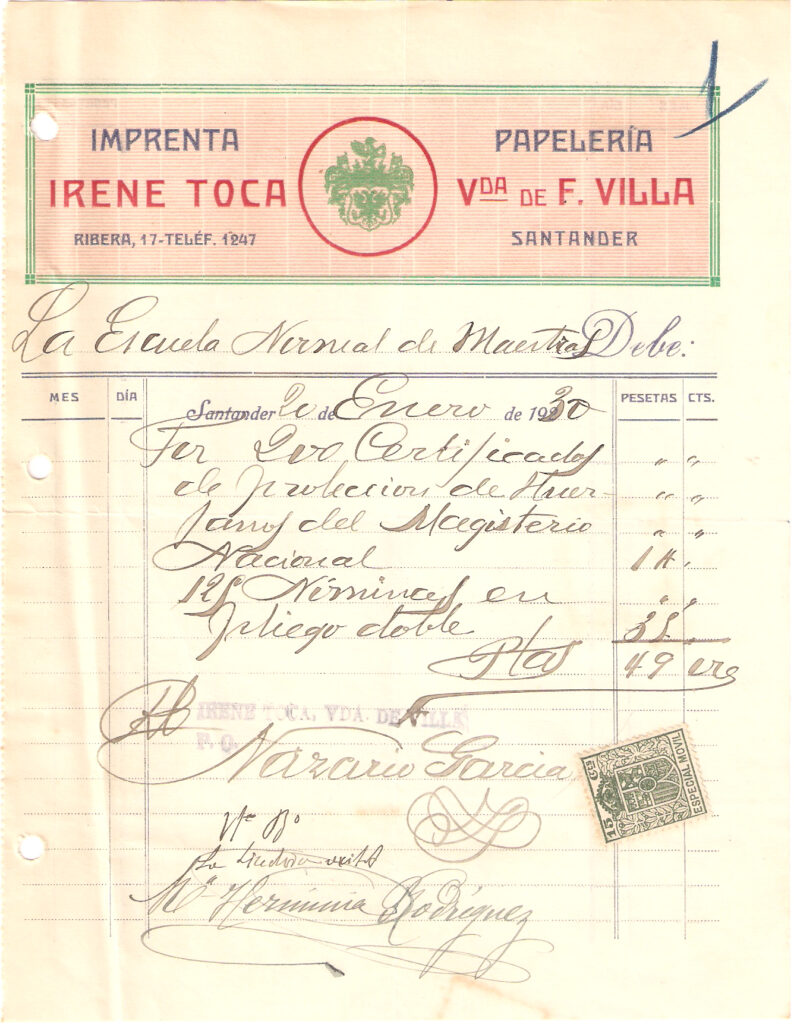 1
IMPRENTA
IRENE TOCA
RIBERA, 17-TELÉF. 1247
PAPELERÍA
VDA DE F. VILLA
SANTANDER
La Escuela Normal de Maestras Debe:
MES DÍA PESETAS CTS.
Santander 20 de Enero de 1930
Por 200 Certificados " "
de protección de Huer- " "
fanos del Magisterio " "
Nacional 14 .
125 Nóminas en " "
pliego doble 35 .
Ptas 49
IRENE TOCA, VDA. DE VILLA
P. O.
Nazario Garcia
15 Cts
ESPECIAL MOVIL
Vto Bo
La Directora
Mª Herminia Rodríguez